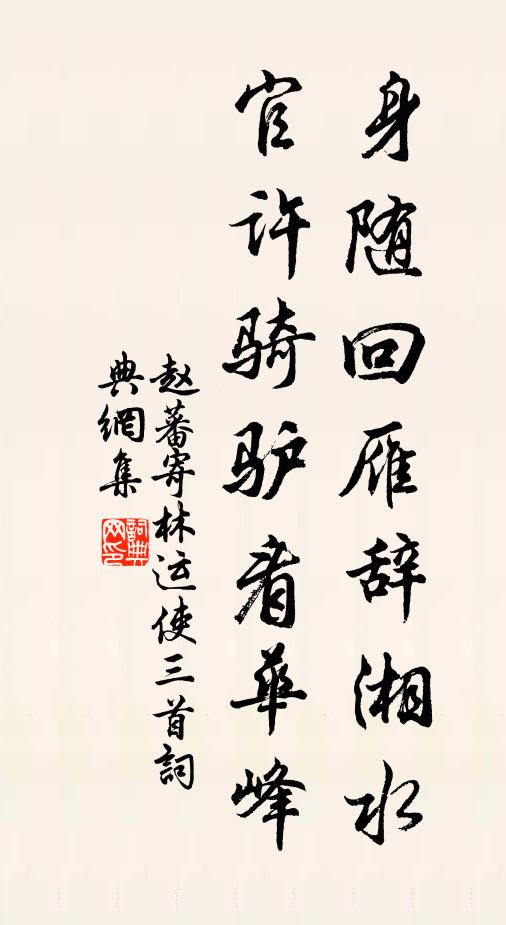 身随回雁辞湘水
官许骑驴看华峰
赵蕃寄林运使三首詞
典網集
詞典网印